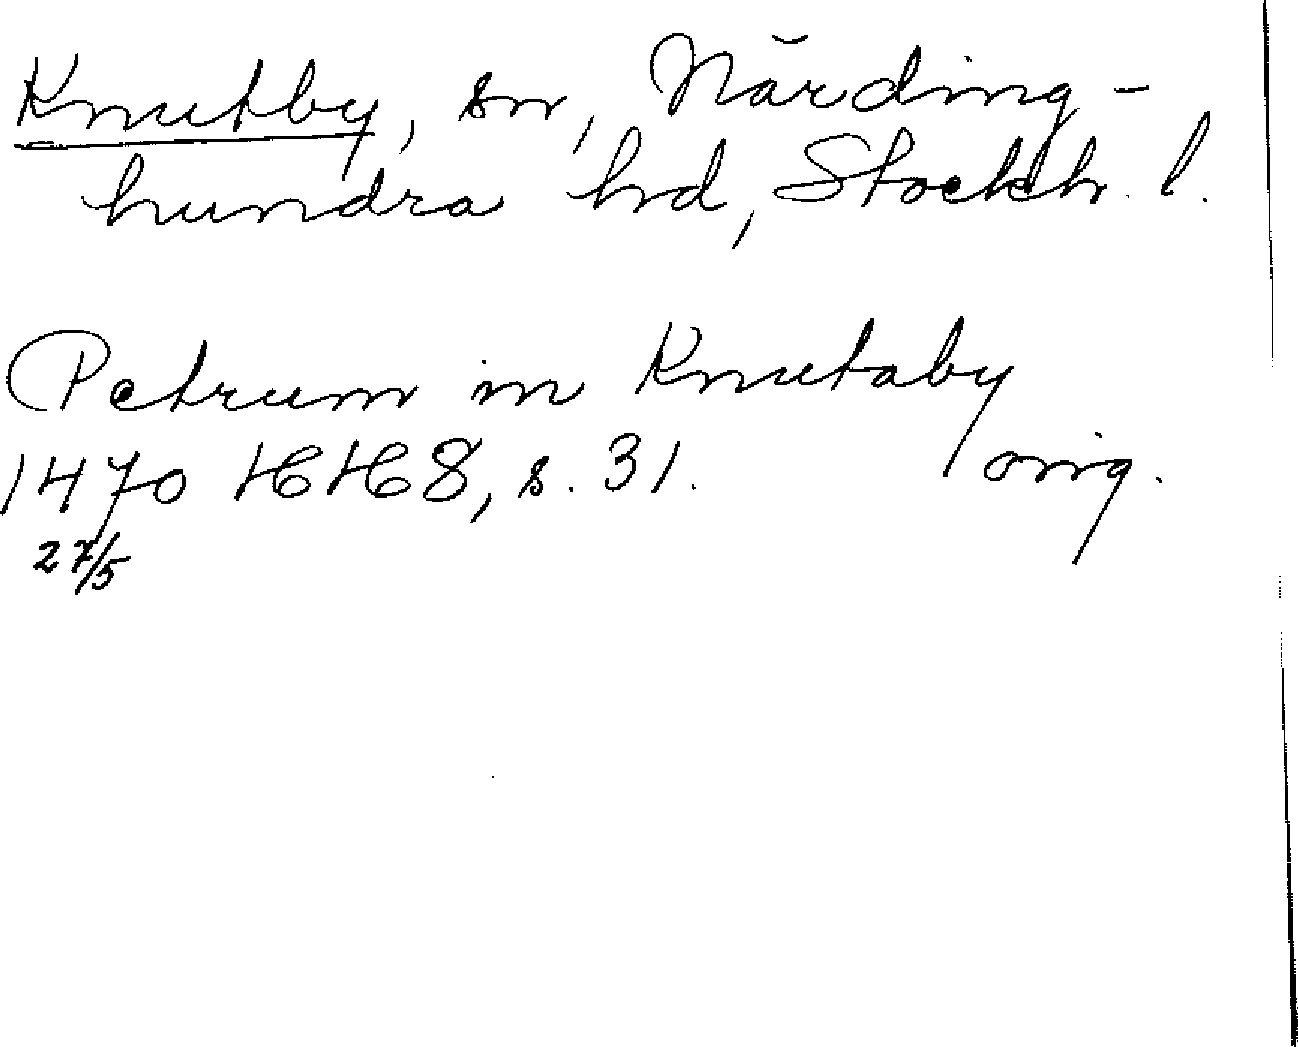 Knutby, sn, Närding-
hundra hd, Stockh. l.
Petrum in Knutaby
1470 HH 8, s. 31. orig.
27/5